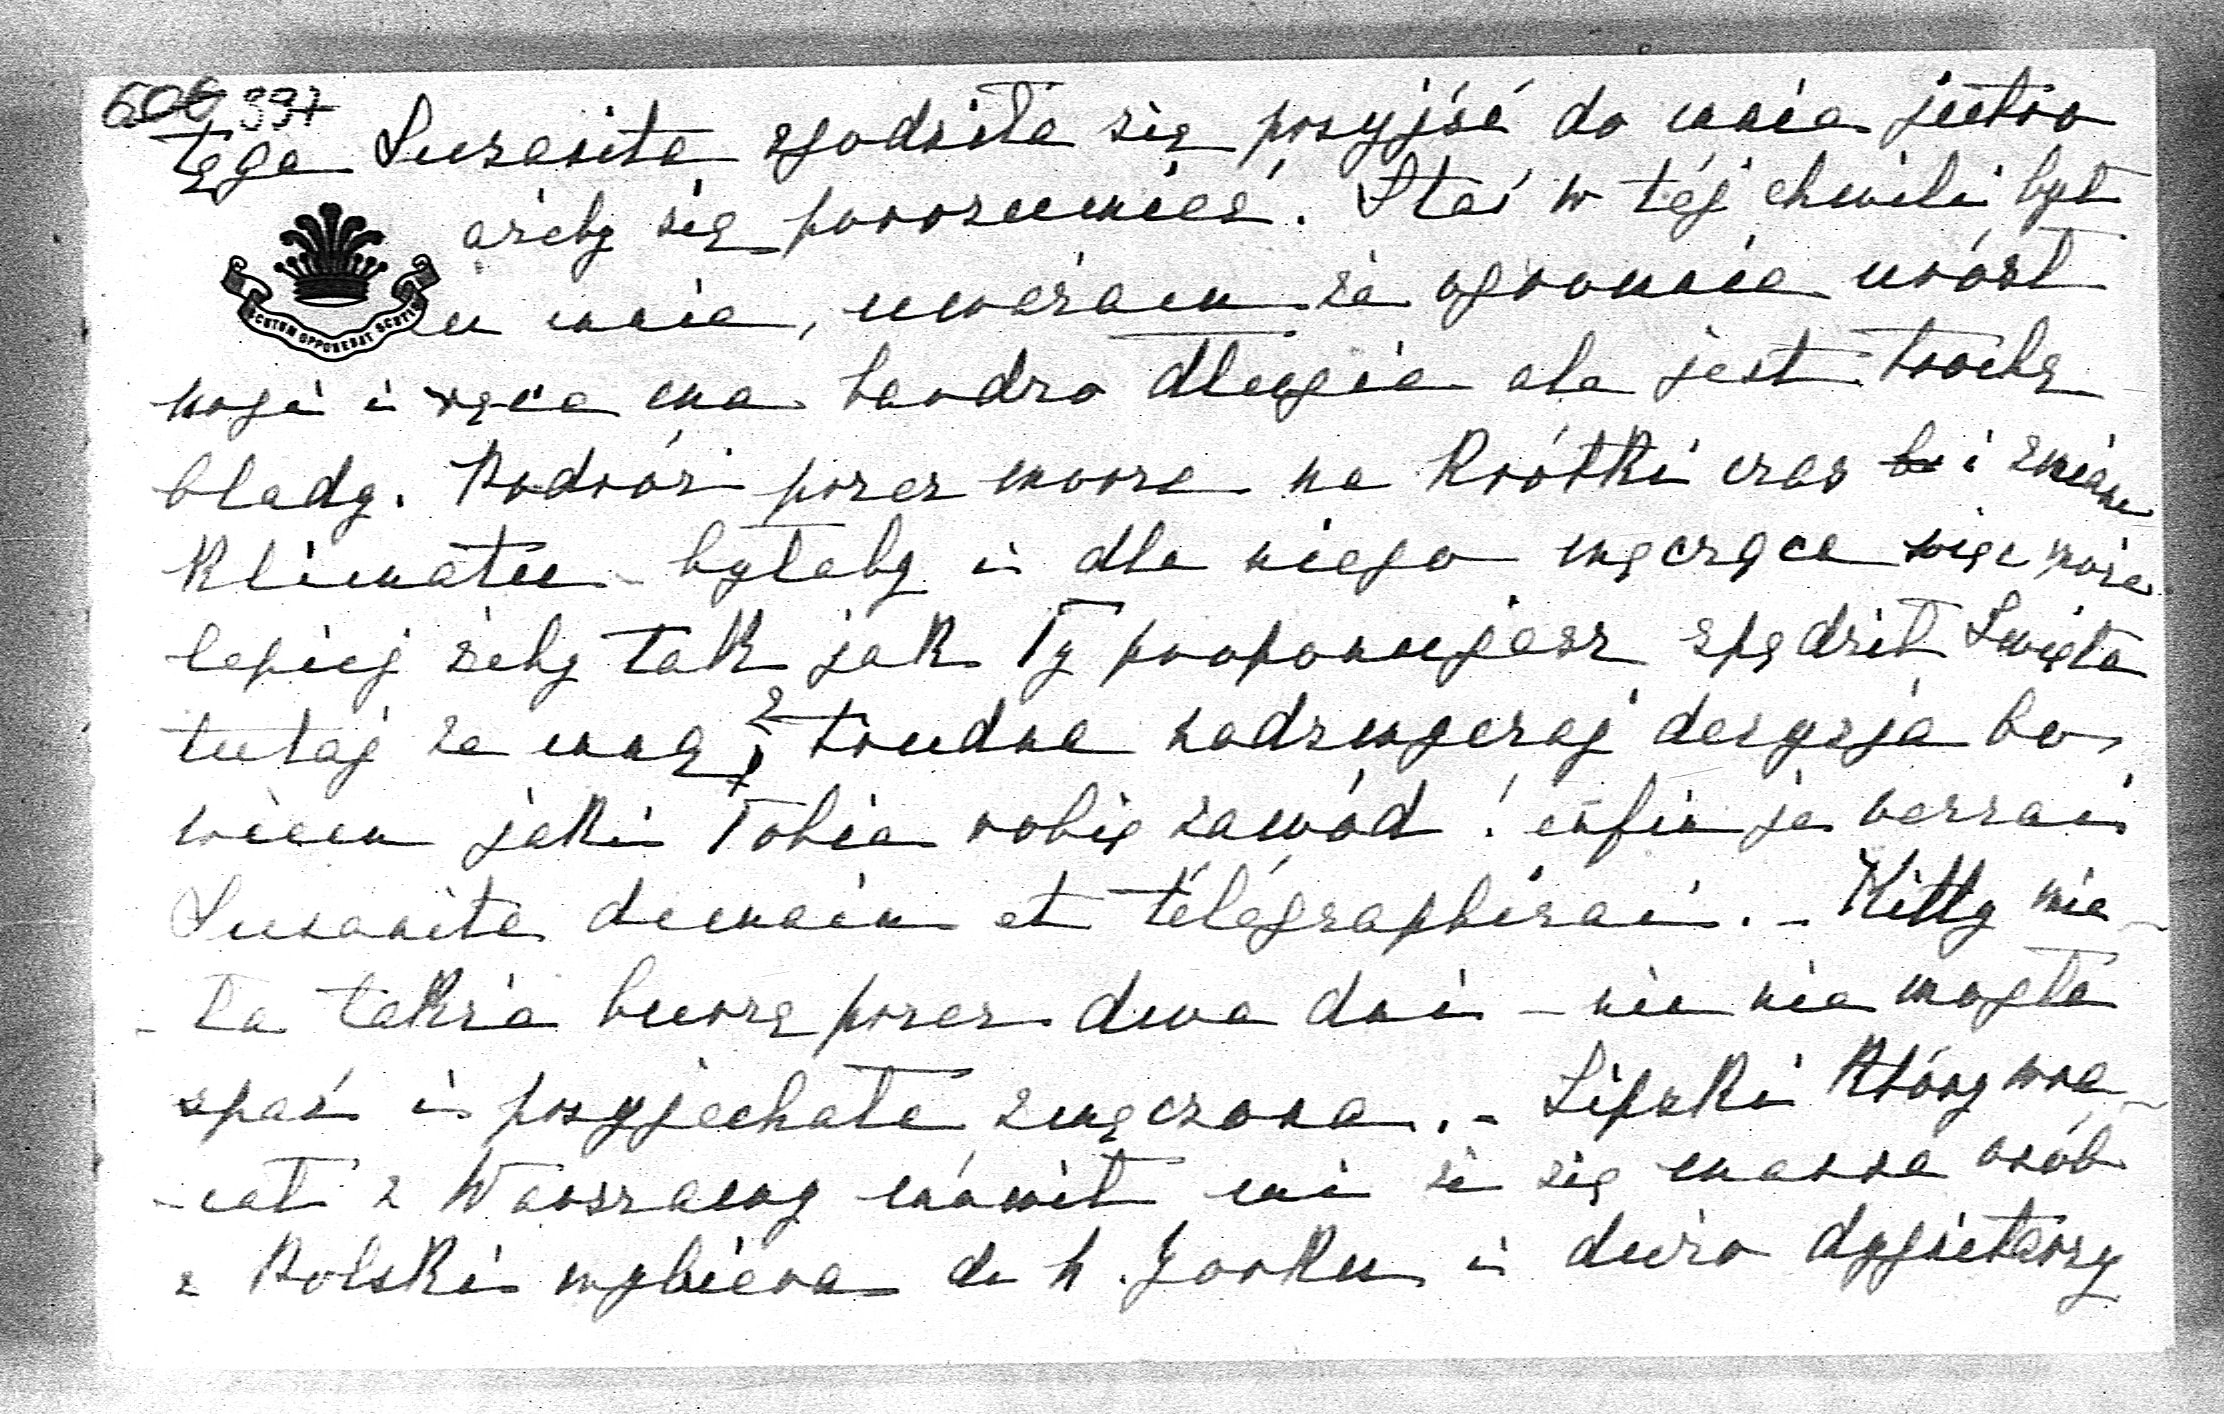 606 397
tego Suzanita zgodziła się przyjść do mnie jutro
ażeby się porozumieć. Staś w tej chwili był
SCUTUM OPPONEBAT SCUTIS
u mnie, uważam że ogromnie urósł
nogi i ręce ma bardzo długie ale jest trochę
blady. Podróż przez morze na krótki czas i zmiana
klimatu - byłaby i dla niego męcząca więc może
lepiej żeby tak jak Ty proponujesz spędził Święta
tutaj ze mną, trudna nadzwyczaj decyzja bo
wiem jaki Tobie robię zawód! enfin je verrai
Suzanita demain et télégraphierai. - Kitty mia-
- ła także burzę przez dwa dni - nic nie mogła
spać i przyjechała zmęczona. - Lipski który wra-
- cał z Warszawy mówił mi że się massa osób
z Polski wybiera do N. Yorku i dużo dygnitarzy